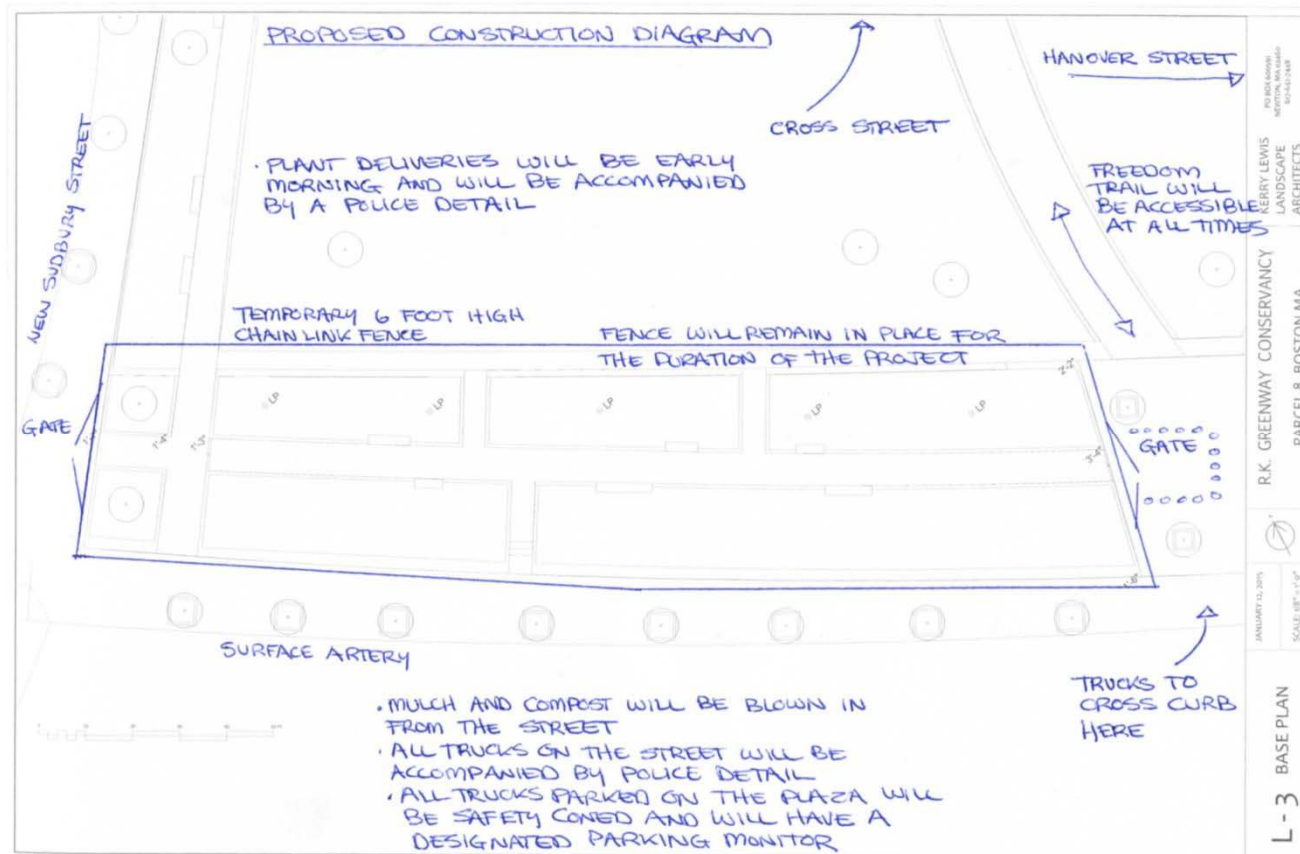 PROPOSED CONSTRUCTION DIAGRAM
HANOVER STREET
CROSS STREET
NEW SUDBURY STREET
· PLANT DELIVERIES WILL BE EARLY
MORNING AND WILL BE ACCOMPANIED
BY A POLICE DETAIL
FREEDOM
TRAIL WILL
BE ACCESSIBLE
AT ALL TIMES
TEMPORARY 6 FOOT HIGH
CHAIN LINK FENCE
FENCE WILL REMAIN IN PLACE FOR
THE DURATION OF THE PROJECT
GATE
LP
LP
LP
LP
LP
GATE
SURFACE ARTERY
· MULCH AND COMPOST WILL BE BLOWN IN
FROM THE STREET
· ALL TRUCKS ON THE STREET WILL BE
ACCOMPANIED BY POLICE DETAIL
· ALL TRUCKS PARKED ON THE PLAZA WILL
BE SAFETY CONED AND WILL HAVE A
DESIGNATED PARKING MONITOR
TRUCKS TO
CROSS CURB
HERE
KERRY LEWIS
LANDSCAPE
ARCHITECTS
R.K. GREENWAY CONSERVANCY
PARCEL 8, BOSTON MA
JANUARY 12, 2015
L - 3 BASE PLAN